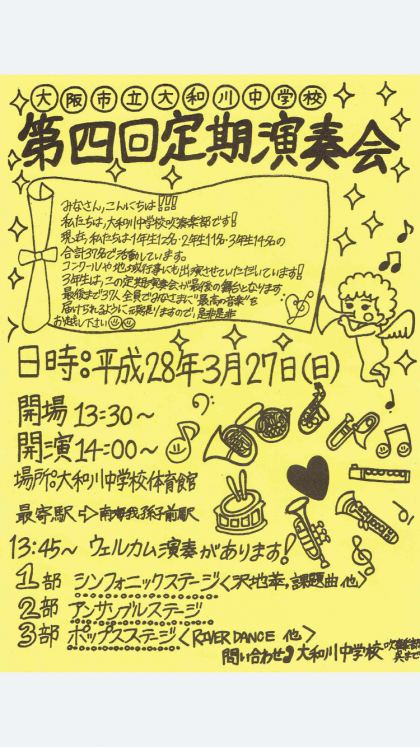 大阪市立大和川中学校
第四回定期演奏会
みなさん、こんにちは!!!
私たちは、大和川中学校吹奏楽部です!
現在、私たちは1年生12名・2年生11名・3年生14名の
合計37名で活動しています。
コンクールや地域行事にも出演させていただいています!
3年生は、この定期演奏会が最後の舞台となります
最後まで37人全員でみなさまに"最高の音楽"を
届けられるように頑張りますので、是非是非
お越し下さい
日時:平成28年3月27日(日)
開場 13:30~
開演 14:00~
場所:大和川中学校体育館
最寄駅⇨南海我孫子前駅
13:45~ ウェルカム演奏があります!
1部 シンフォニックステージ<天地華,課題曲 他>
2部 アンサンブルステージ
3部 ポップスステージ<RIVER DANCE 他>
問い合わせ♪大和川中学校 吹奏楽部
まで